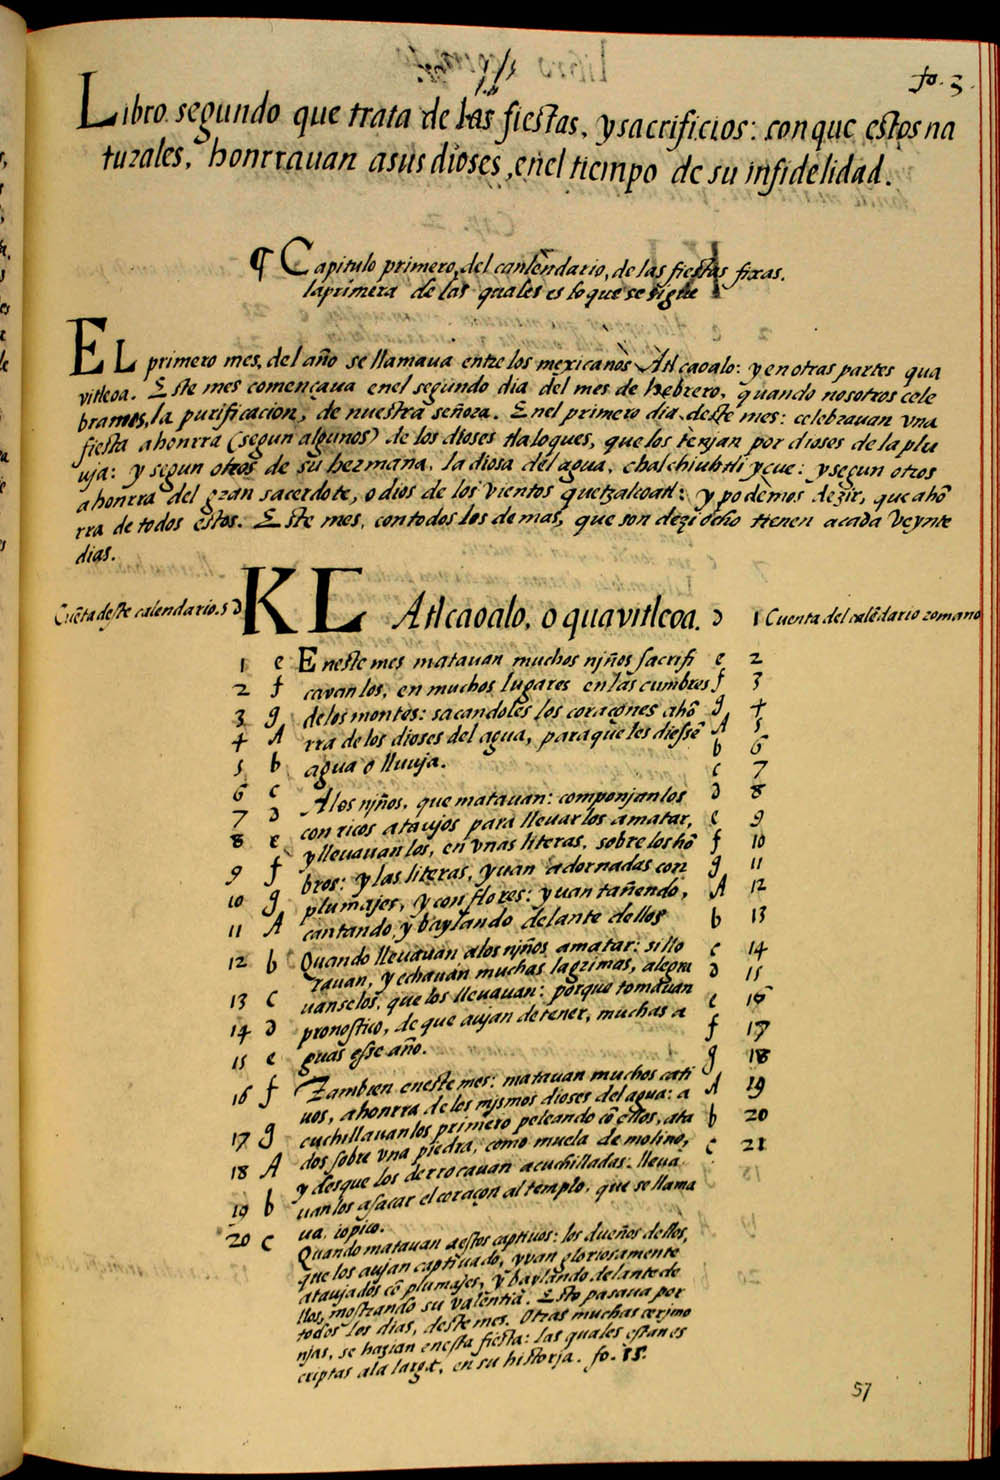 fo. 3.
Libro segundo que trata de las fiestas, y sacrificios: con que estos na
turales, honrrauan a sus dioses, en el tiempo de su infidelidad.
¶ Capitulo primero, del canlendario, de las fiestas fixas.
la primera de las quales es lo que se sigue
EL primero mes, del año se llamaua entre los mexicanos Atl caoalo: y en otras partes qua
vitleoa. Este mes començaua en el segundo dia del mes de hebrero, quando nosotros cele
bramos, la purificacion, de nuestra señora. En el primero dia deste mes: celebrauan vna
fiesta a honrra (segun algunos) de los dioses tlaloques, que los tenjan por dioses de la plu
uja: y segun otros de su hermana, la diosa del agua, chalchiuhtli ycue: y segun otros
a honrra del gran sacerdote, o dios de los vientos quetzalcoatl: y podemos dezir, que a hõ
rra de todos estos. Este mes, con todos los demas, que son dezi ocho tienen a cada veynte
dias.
Cuẽta deste calendario. 5 d KL Atlcaoalo, o quavitleoa. d 1 Cuenta del calẽdario romano
1 e En este mes matauan muchos njños sacrifi e 2
2 f cavan los, en muchos lugares en las cumbres f 3
3 g de los montes: sacandoles los coraçones a hõ g 4
4 A rra de los dioses del agua, para que les diessẽ A 5
5 b agua o lluuja. b 6
6 c c 7
A los njños, que matauan: componjanlos d 8
7 d con ricos ataujos para lleuarlos a matar, e 9
8 e y lleuauan los, en vnas literas, sobre los hõ f 10
9 f bros: y las literas, yuan adornadas con g 11
10 g plumajes, y con flores: yuan tañendo, A 12
11 A cantando, y baylando delante dellos b 13
12 b Quando lleuauan a los njños a matar: si llo c 14
rauan, y echauan muchas lagrimas, alegra d 15
13 c uanse los, que los lleuauan: porque tomauan e 16
14 d pronostico, de que aujan de tener, muchas a f 17
15 e guas esse año. g 18
16 f Tambien en este mes: matauan muchos cati A 19
uos, a honrra de los mjsmos dioses del agua: a b 20
17 g cuchillauanlos primero peleando cõ ellos, ata c 21
18 A dos sobre vna piedra, como muela de molino,
y desque los derrocauan a cuchilladas: lleua
19 b uanlos a sacar el coraçon al templo, que se llama
20 c ua, iopico.
Quando matauan a estos captiuos: los dueños dellos,
que los aujan captiuado, yvan gloriosamente
atavjados cõ plumajes, y baylando delante de
llos, mostrando su valentia. Esto pasaua por
todos los dias, deste mes. Otras muchas cerjmo
njas, se hazian en esta fiesta: las quales estan es
criptas a la larga, en su historja. fo. 15.
57